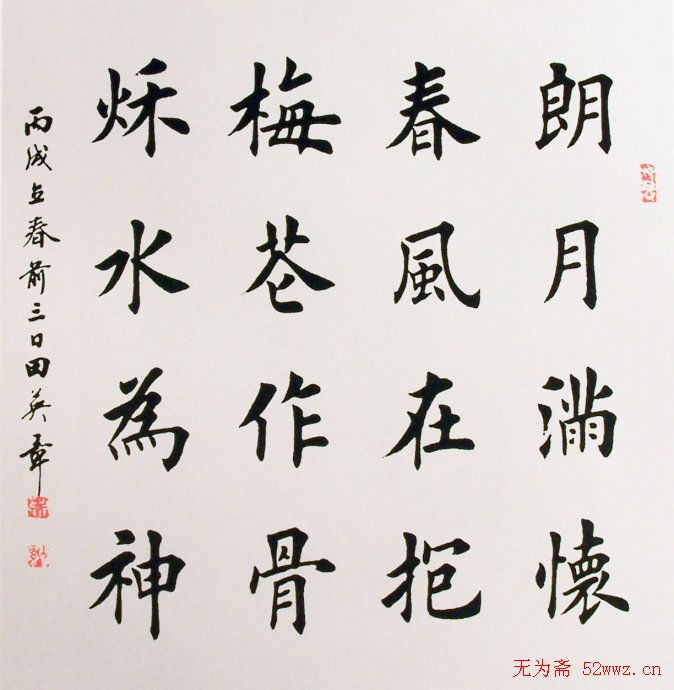 朗月滿懷
春風在抱
梅花作骨
秌水為神
丙戌立春前三日田英章
无为斋 52wwz.cn